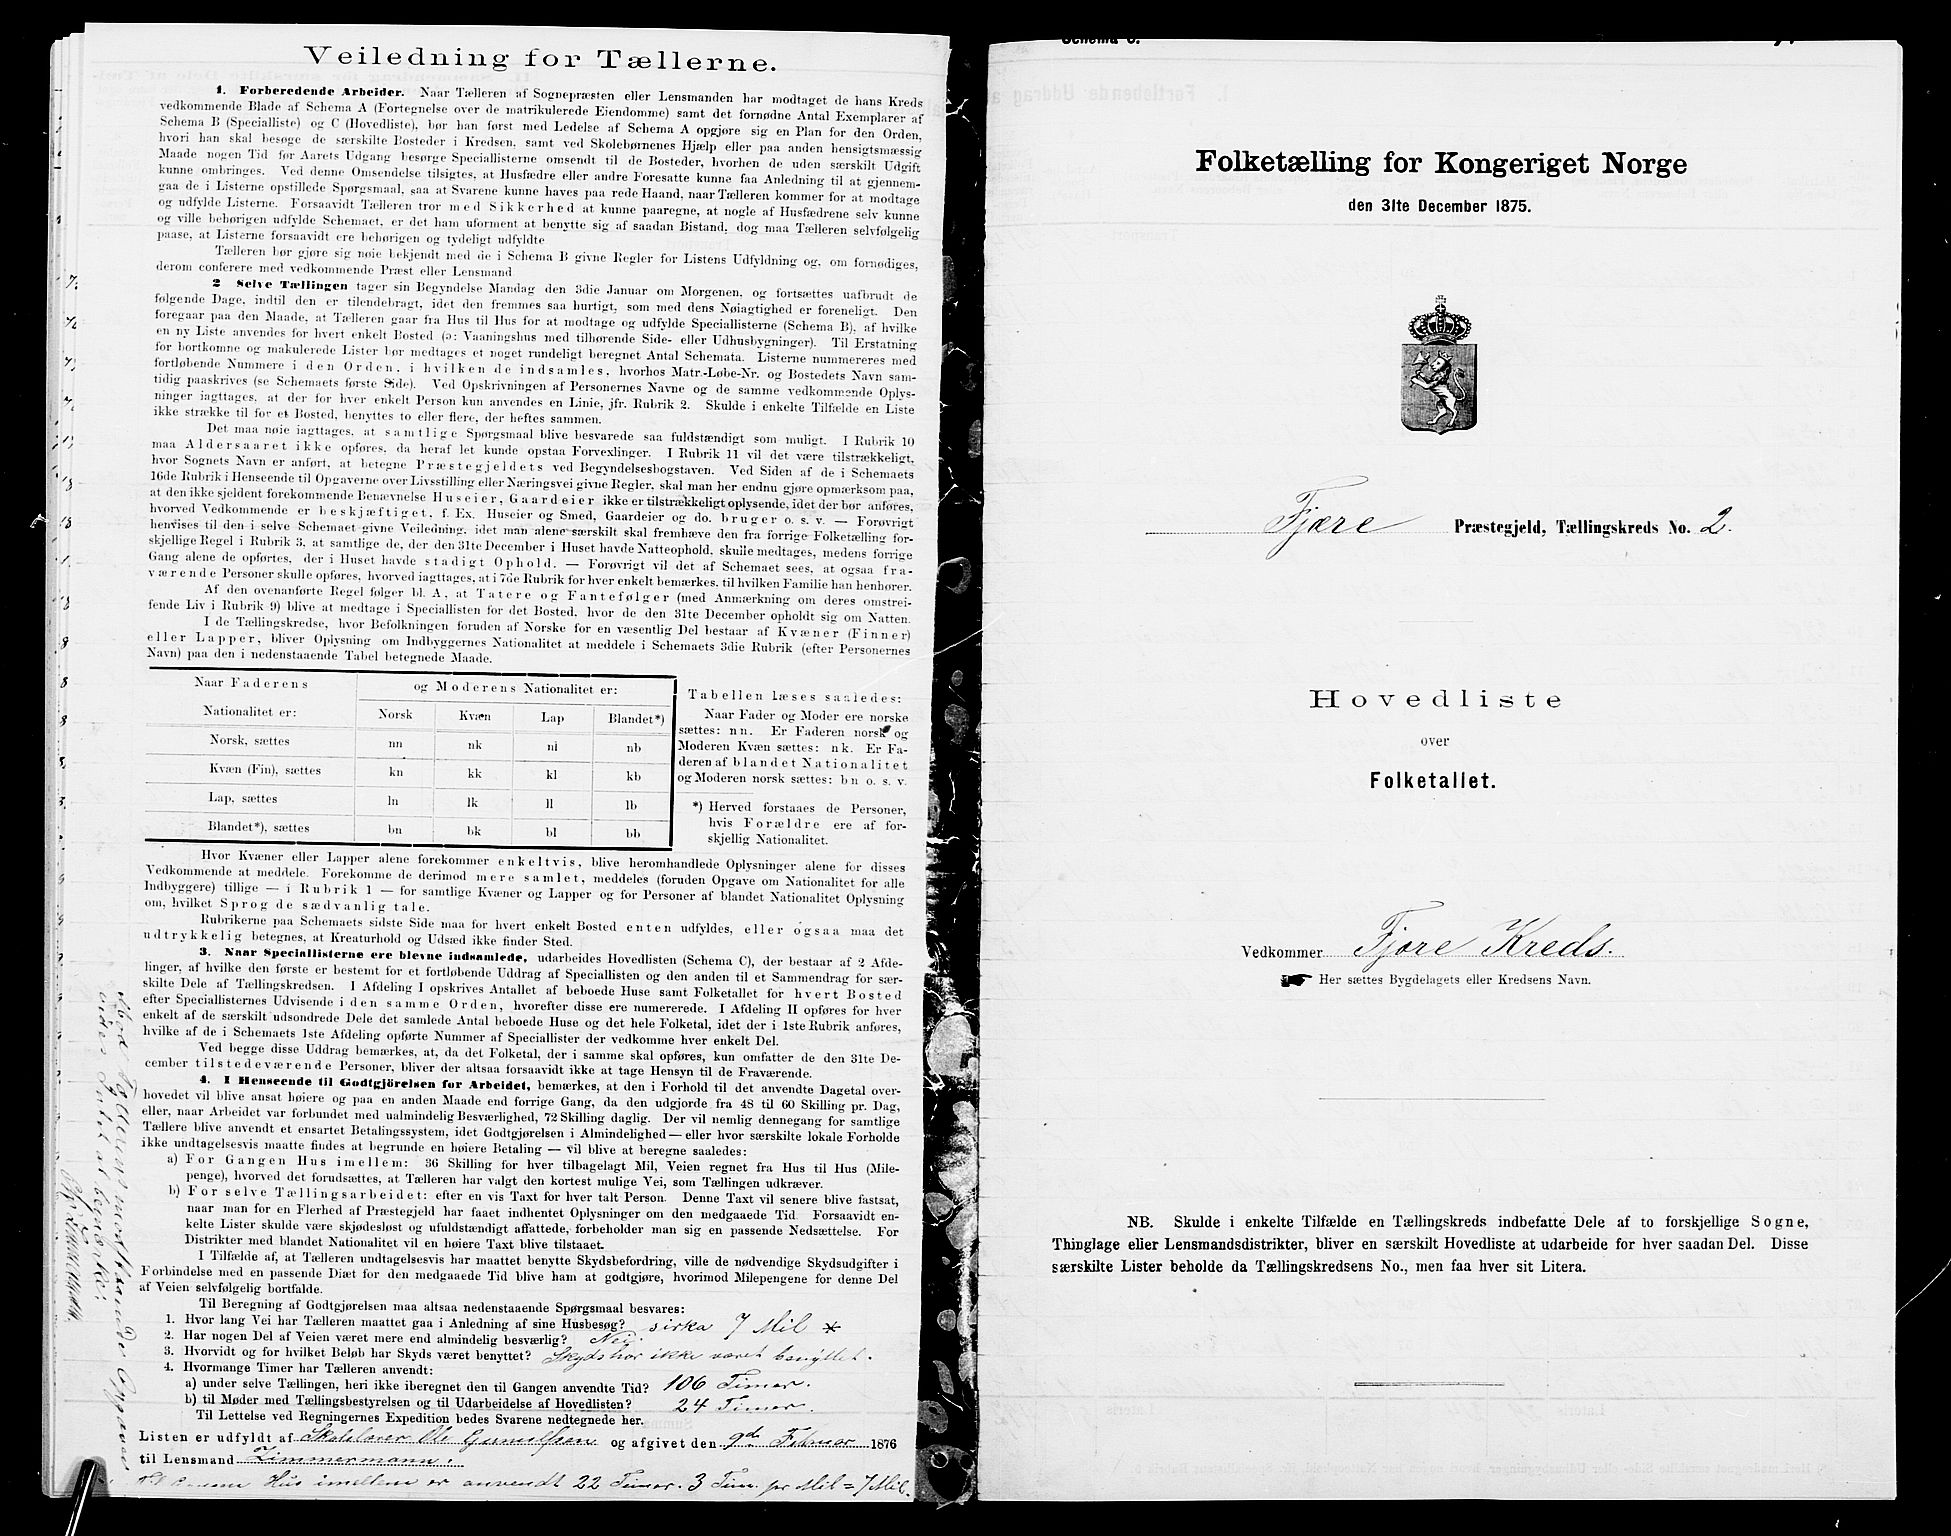 Veiledning for Tællerne.
1. Forberedende Arbeider. Naar Tælleren af Sognepræsten eller Lensmanden har modtaget de hans Kreds
vedkommende Blade af Schema A (Fortegnelse over de matrikulerede Eiendomme) samt det fornødne Antal Exemplarer af
Schema B (Specialliste) og C (Hovedliste), bør han først med Ledelse af Schema A opgjøre sig en Plan for den Orden,
hvori han skal besøge de særskilte Bosteder i Kredsen, samt ved Skolebørnenes Hjælp eller paa anden hensigtsmæssig
Maade nogen Tid før Aarets Udgang besørge Speciallisterne omsendt til de Bosteder, hvorhen de uden særskilt Udgift
kunne ombringes. Ved denne Omsendelse tilsigtes, at Husfædre eller andre Foresatte kunne faa Anledning til at gjennem-
gaa de i Listerne opstillede Spørgsmaal, saa at Svarene kunne haves paa rede Haand, naar Tælleren kommer for at modtage
og udfylde Listerne. Forsaavidt Tælleren tror med Sikkerhed at kunne paaregne, at nogle af Husfædrene selv kunne
og ville behørigen udfylde Schemaet, er det ham uforment at benytte sig af saadan Bistand, dog maa Tælleren selvfølgelig
paase, at Listerne forsaavidt ere behørigen og tydeligt udfyldte
Tælleren bør gjøre sig nøie bekjendt med de i Schema B givne Regler for Listens Udfyldning og, om fornødiges,
derom conferere med vedkommende Præst eller Lensmand
2 Selve Tællingen tager sin Begyndelse Mandag den 3die Januar om Morgenen, og fortsættes uafbrudt de
følgende Dage, indtil den er tilendebragt, idet den fremmes saa hurtigt, som med dens Nøiagtighed er foreneligt. Den
foregaar paa den Maade, at Tælleren gaar fra Hus til Hus for at modtage og udfylde Speciallisterne (Schema B), af hvilke
en ny Liste anvendes for hvert enkelt Bosted (ɔ: Vaaningshus med tilhørende Side- eller Udhusbygninger). Til Erstatning
for bortkomne og makulerede Lister bør medtages et noget rundeligt beregnet Antal Schemata. Listerne nummereres med
fortløbende Nummere i den Orden, i hvilken de indsamles, hvorhos Matr.-Løbe-Nr. og Bostedets Navn sam-
tidig paaskrives (se Schemaets første Side). Ved Opskrivningen af Personernes Navne og de samme vedkommende Oplys-
ninger iagttages, at der for hver enkelt Person kun anvendes en Linie, jfr. Rubrik 2. Skulde i enkelte Tilfælde en Liste
ikke strække til for et Bosted, benyttes to eller flere, der heftes sammen.
Det maa nøie iagttages, at samtlige Spørgsmaal blive besvarede saa fuldstændigt som muligt. I Rubrik 10
maa Aldersaaret ikke opføres, da heraf let kunde opstaa Forvexlinger. I Rubrik 11 vil det være tilstrækkeligt,
hvor Sognets Navn er anført, at betegne Præstegjeldets ved Begyndelsesbogstaven. Ved Siden af de i Schemaets
16de Rubrik i Henseende til Opgaverne over Livsstilling eller Næringsvei givne Regler, skal man her endnu gjøre opmærksom paa,
at den ikke sjeldent forekommende Benævnelse Huseier, Gaardeier ikke er tilstrækkeligt oplysende, idet der bør anføres,
hvorved Vedkommende er beskjæftiget, f. Ex. Huseier og Smed, Gaardeier og do. bruger o. s. v. — Forøvrigt
henvises til den i selve Schemaet givne Veiledning, idet man alene særskilt skal fremhæve den fra forrige Folketælling for-
skjellige Regel i Rubrik 3, at samtlige de, der den 31te December i Huset havde Natteophold, skulle medtages, medens forrige
Gang alene de opførtes, der i Huset havde stadigt Ophold. — Forøvrigt vil det af Schemaet sees, at ogsaa fra-
værende Personer skulle opføres, hvorved iagttages, at i 7de Rubrik for hver enkelt bemærkes, til hvilken Familie han henhører.
Af den ovenanførte Regel følger bl. A, at Tatere og Fantefølger (med Anmærkning om deres omstrei-
fende Liv i Rubrik 9) blive at medtage i Speciallisten for det Bosted, hvor de den 31te December opholdt sig om Natten.
I de Tællingskredse, hvor Befolkningen foruden af Norske for en væsentlig Del bestaar af Kvæner (Finner)
eller Lapper, bliver Oplysning om Indbyggernes Nationalitet at meddele i Schemaets 3die Rubrik (efter Personernes
Navn) paa den i nedenstaaende Tabel betegnede Maade.
Naar Faderens Nationalitet er: og Moderens Nationalitet er:
Norsk Kvæn Lap Blandet*)
Norsk, sættes nn nk nl nb
Kvæn (Fin), sættes kn kk kl kb
Lap, sættes ln lk ll lb
Blandet*), sættes bn bk bl bb
Tabellen læses saaledes:
Naar Fader og Moder ere norske
sættes: nn. Er Faderen norsk og
Moderen Kvæn sættes: nk. Er Fa-
deren af blandet Nationalitet
og Moderen norsk sættes: bn o. s. v.
*) Herved forstaaes de Personer,
hvis Forældre ere af for-
skjellig Nationalitet.
Hvor Kvæner eller Lapper alene forekommer enkeltvis, blive heromhandlede Oplysninger alene for disses
Vedkommende at meddele. Forekomme de derimod mere samlet, meddeles (foruden Opgave om Nationalitet for alle
Indbyggere) tillige — i Rubrik 1 — for samtlige Kvæner og Lapper og for Personer af blandet Nationalitet Oplysning
om, hvilket Sprog de sædvanlig tale.
Rubrikerne paa Schemaets sidste Side maa for hvert enkelt Bosted enten udfyldes, eller ogsaa maa det
udtrykkelig betegnes, at Kreaturhold og Udsæd ikke finder Sted.
3. Naar Speciallisterne ere blevne indsamlede, udarbeides Hovedlisten (Schema C), der bestaar af 2 Afde-
linger, af hvilke den første er bestemt for et fortløbende Uddrag af Speciallisten og den anden til et Sammendrag for sær-
skilte Dele af Tællingskredsen. I Afdeling I opskrives Antallet af beboede Huse samt Folketallet for hvert Bosted
efter Speciallisternes Udvisende i den samme Orden, hvorefter disse ere numererede. I Afdeling II opføres for hver
enkelt af de særskilt udsondrede Dele det samlede Antal beboede Huse og det hele Folketal, idet der i 1ste Rubrik anføres,
hvilke af de i Schemaets 1ste Afdeling opførte Nummer af Speciallister der vedkomme hver enkelt Del.
Ved begge disse Uddrag bemærkes, at, da det Folketal, der i samme skal opføres, kun omfatter de den 31te De-
cember tilstedeværende Personer, bliver der altsaa forsaavidt ikke at tage Hensyn til de Fraværende.
4. I Henseende til Godtgjörelsen for Arbeidet, bemærkes, at den i Forhold til det anvendte Dagetal over-
hovedet vil blive ansat høiere og paa en anden Maade end forrige Gang, da den udgjorde fra 48 til 60 Skilling pr. Dag,
eller, naar Arbeidet var forbundet med ualmindelig Besværlighed, 72 Skilling daglig. Der vil nemlig dennegang for samtlige
Tællere blive anvendt et ensartet Betalingssystem, idet Godtgjørelsen i Almindelighed — eller hvor særskilte lokale Forholde
ikke undtagelsesvis maatte findes at begrunde en høiere Betaling — vil blive at beregne saaledes:
a) For Gangen Hus imellem: 36 Skilling for hver tilbagelagt Mil, Veien regnet fra Hus til Hus (Mile-
penge), hvorved det forudsættes, at Tælleren har valgt den kortest mulige Vei, som Tællingen udkræver.
b) For selve Tællingsarbeidet: efter en vis Taxt for hver talt Person. Denne Taxt vil senere blive fastsat,
naar man for en Flerhed af Præstegjeld har faaet indhentet Oplysninger om den medgaaede Tid Forsaavidt en-
kelte Lister skulde være skjødesløst og ufuldstændigt affattede, forbeholder man sig en passende Nedsættelse. For
Distrikter med blandet Nationalitet vil en høiere Taxt blive tilstaaet.
I Tilfælde af, at Tælleren undtagelsesvis har maattet benytte Skydsbefordring, ville de nødvendige Skydsudgifter i
Forbindelse med en passende Diæt for den medgaaede Tid blive ham at godtgjøre, hvorimod Milepengene for denne Del
af Veien selvfølgelig bortfalde.
Til Beregning af Godtgjørelsen maa altsaa nedenstaaende Spørgsmaal besvares:
1. Hvor lang Vei har Tælleren maattet gaa i Anledning af sine Husbesøg? sirka 7 Mil *
2. Har nogen Del af Veien været mere end almindelig besværlig? Nei.
3. Hvorvidt og for hvilket Beløb har Skyds været benyttet? Skyds har ikke været benyttet.
4. Hvormange Timer har Tælleren anvendt:
a) under selve Tællingen, heri ikke iberegnet den til Gangen anvendte Tid? 106 Timer.
b) til Møder med Tællingsbestyrelsen og til Udarbeidelse af Hovedlisten? 24 Timer.
Til Lettelse ved Regningernes Expedition bedes Svarene nedtegnede her.
Listen er udfyldt af Skolelærer Ole Gunulfsen og afgivet den 9de Februar 1876
til Lensmand Zimmermann.
Hus imellem er anvendt 22 Timer. 3 Tim. pr Mil = 7 Mil.
Mod Tællerens modstaaende Opgaver
vides Intet at bemærke.
Schema C.
Folketælling for Kongeriget Norge
den 31te December 1875.
Fjære Præstegjeld, Tællingskreds No. 2.
Hovedliste
over
Folketallet.
Vedkommer Fjære Kreds.
Her sættes Bygdelagets eller Kredsens Navn.
NB. Skulde i enkelte Tilfælde en Tællingskreds indbefatte Dele af to forskjellige Sogne,
Thinglage eller Lensmandsdistrikter, bliver en særskilt Hovedliste at udarbeide for hver saadan Del. Disse
særskilte Lister beholde da Tællingskredsens No., men faa hver sit Litera.